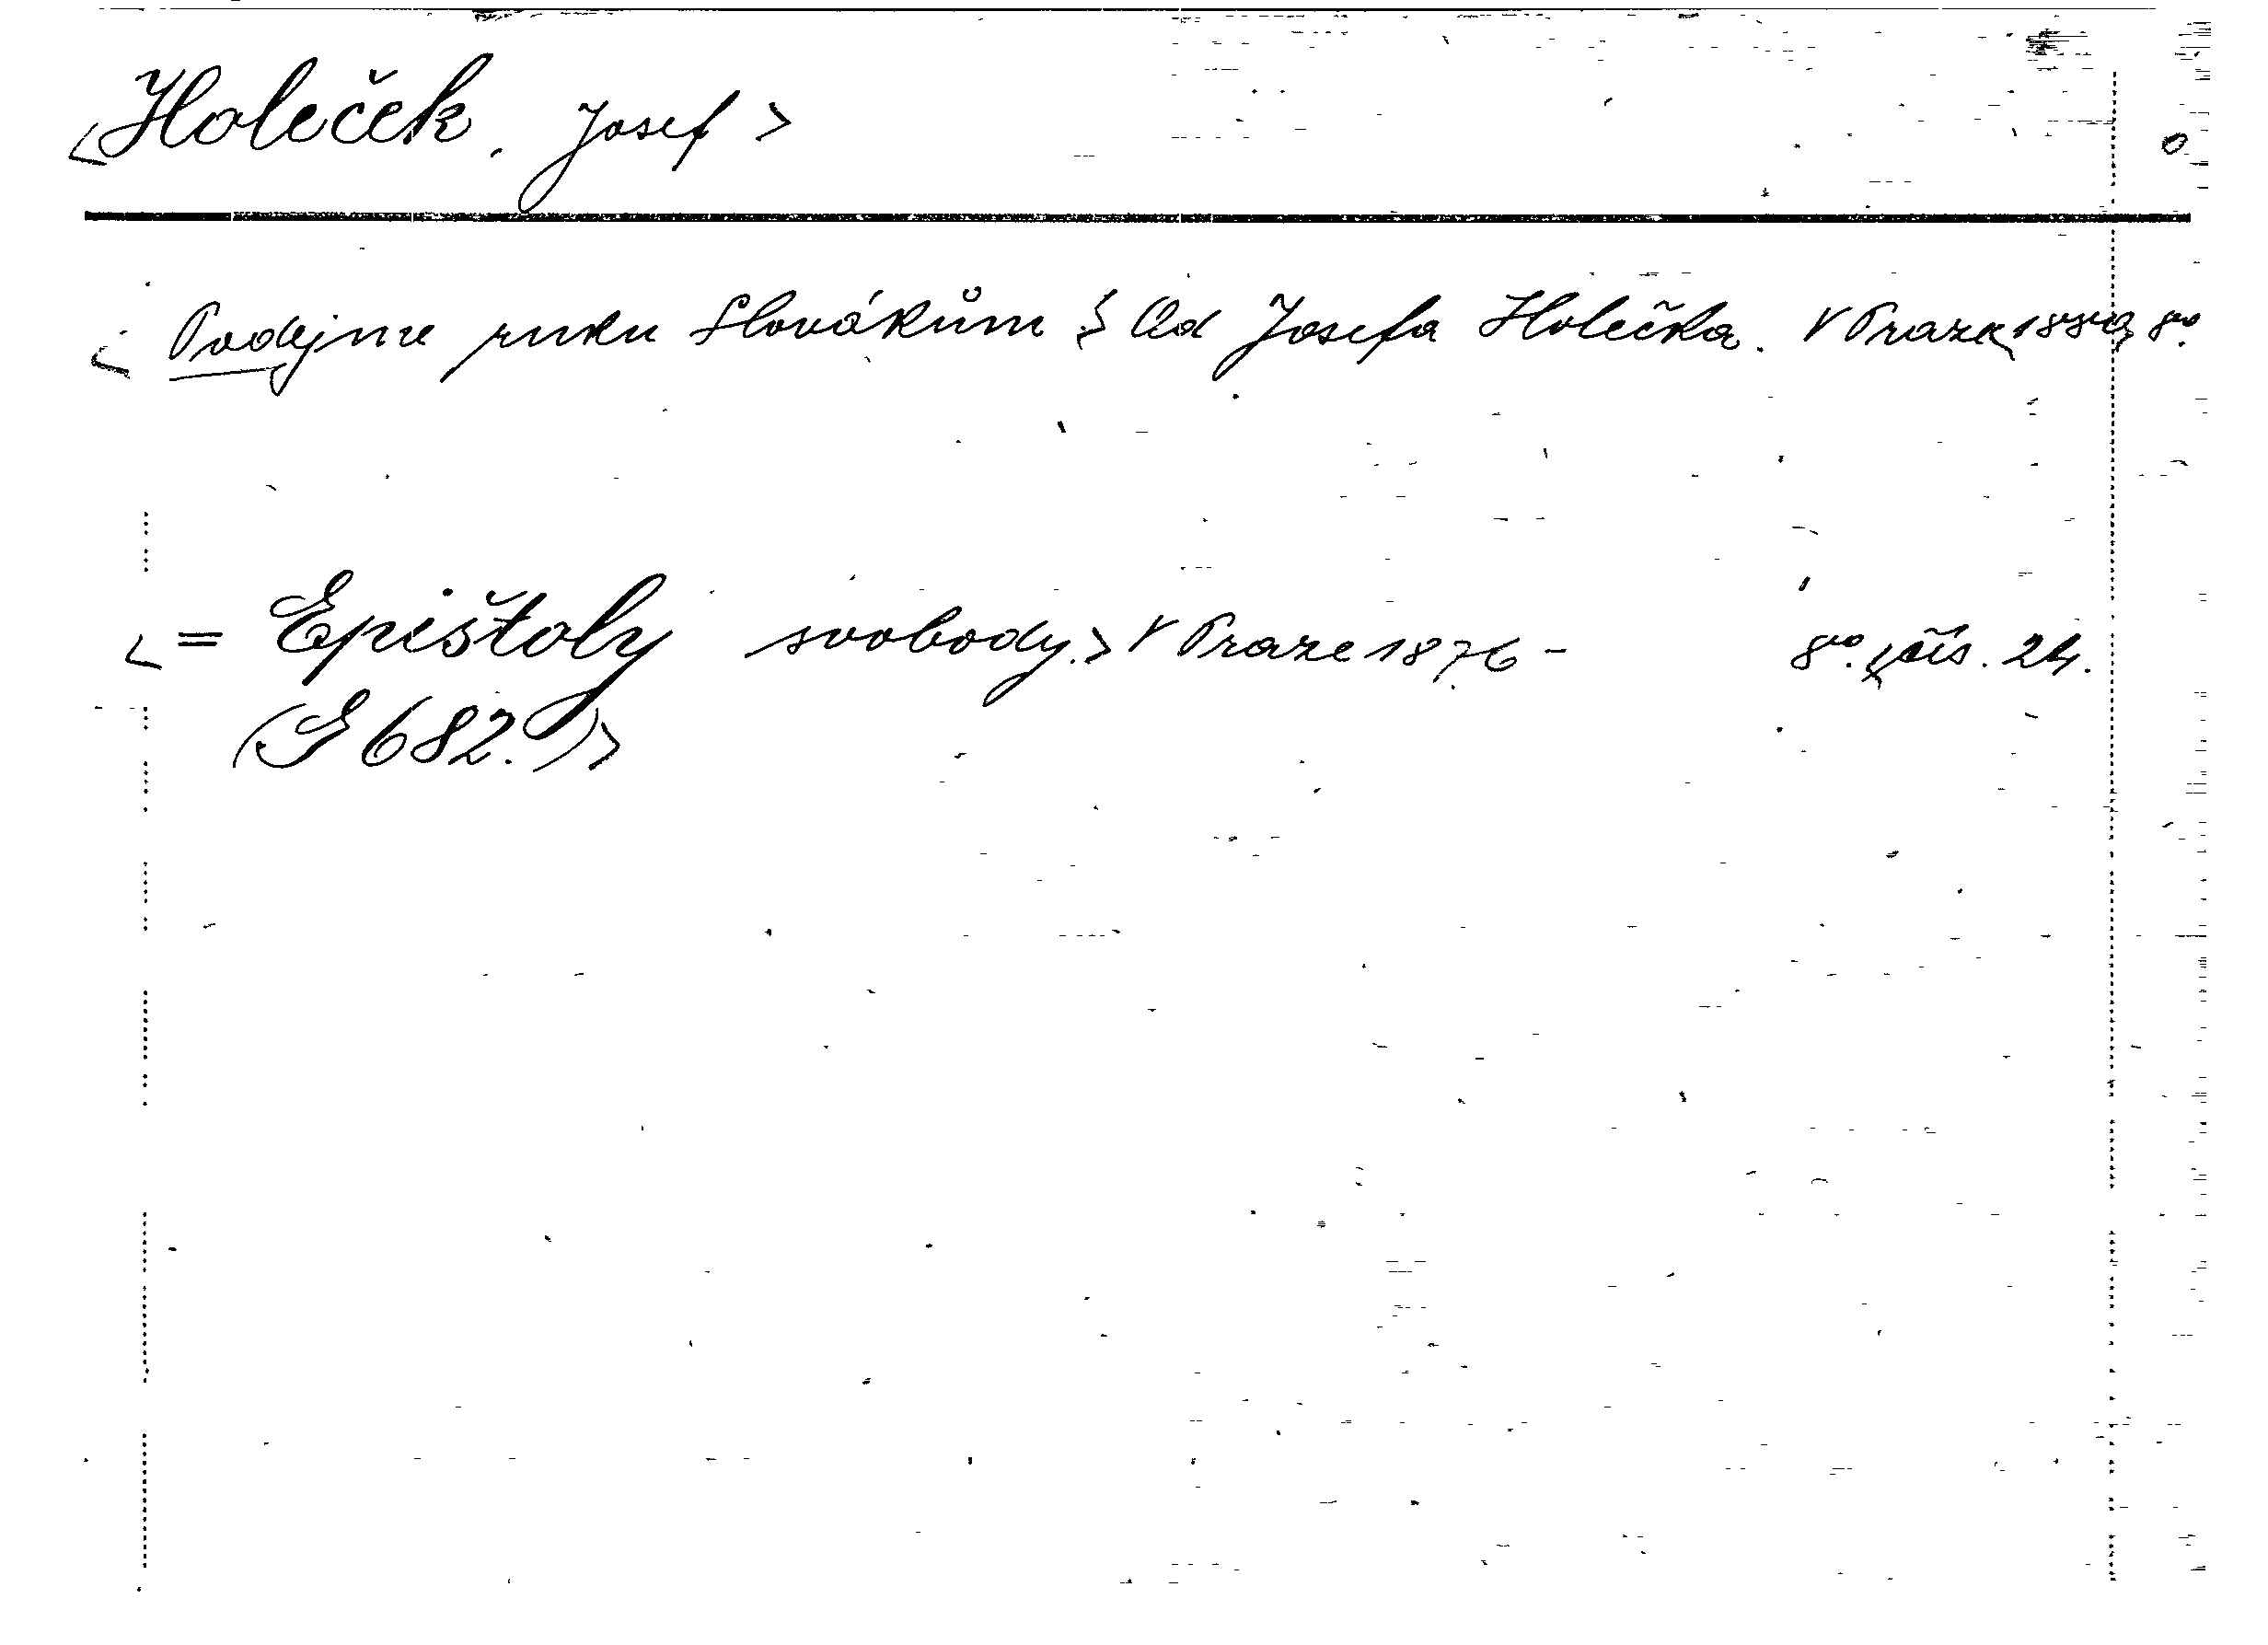 <Holeček, Josef>
< Podejme ruku Slovákům! Od Josefa Holečka. V Praze, 1880, 8º.
<= Epištoly svobody.> V Praze 1876 - 8º. čís. 24.
(G 682.)>